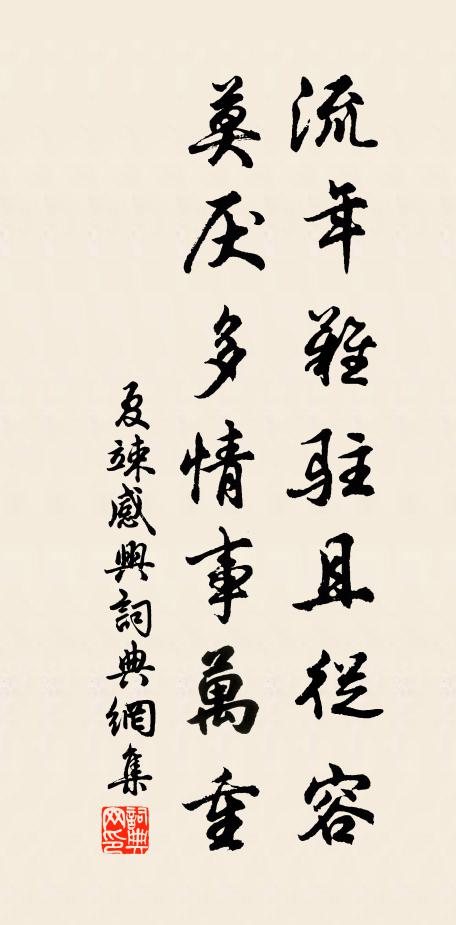 流年難駐且從容
莫厌多情事萬重
夏竦感興詞典網集
詞典网印